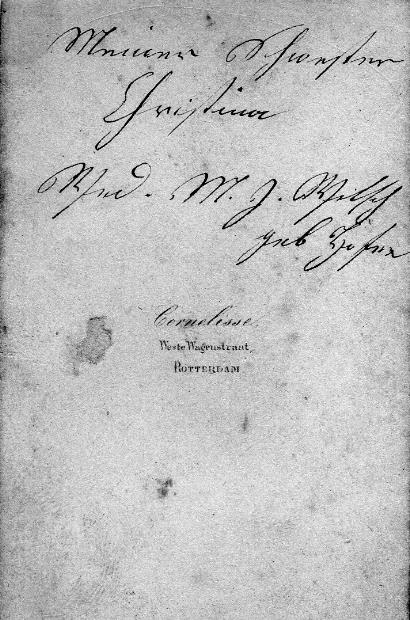 Meiner Schwester
Christina
Wed. M. J. Wilsch
geb
Cornelisse
Weste Wagenstraat
ROTTERDAM